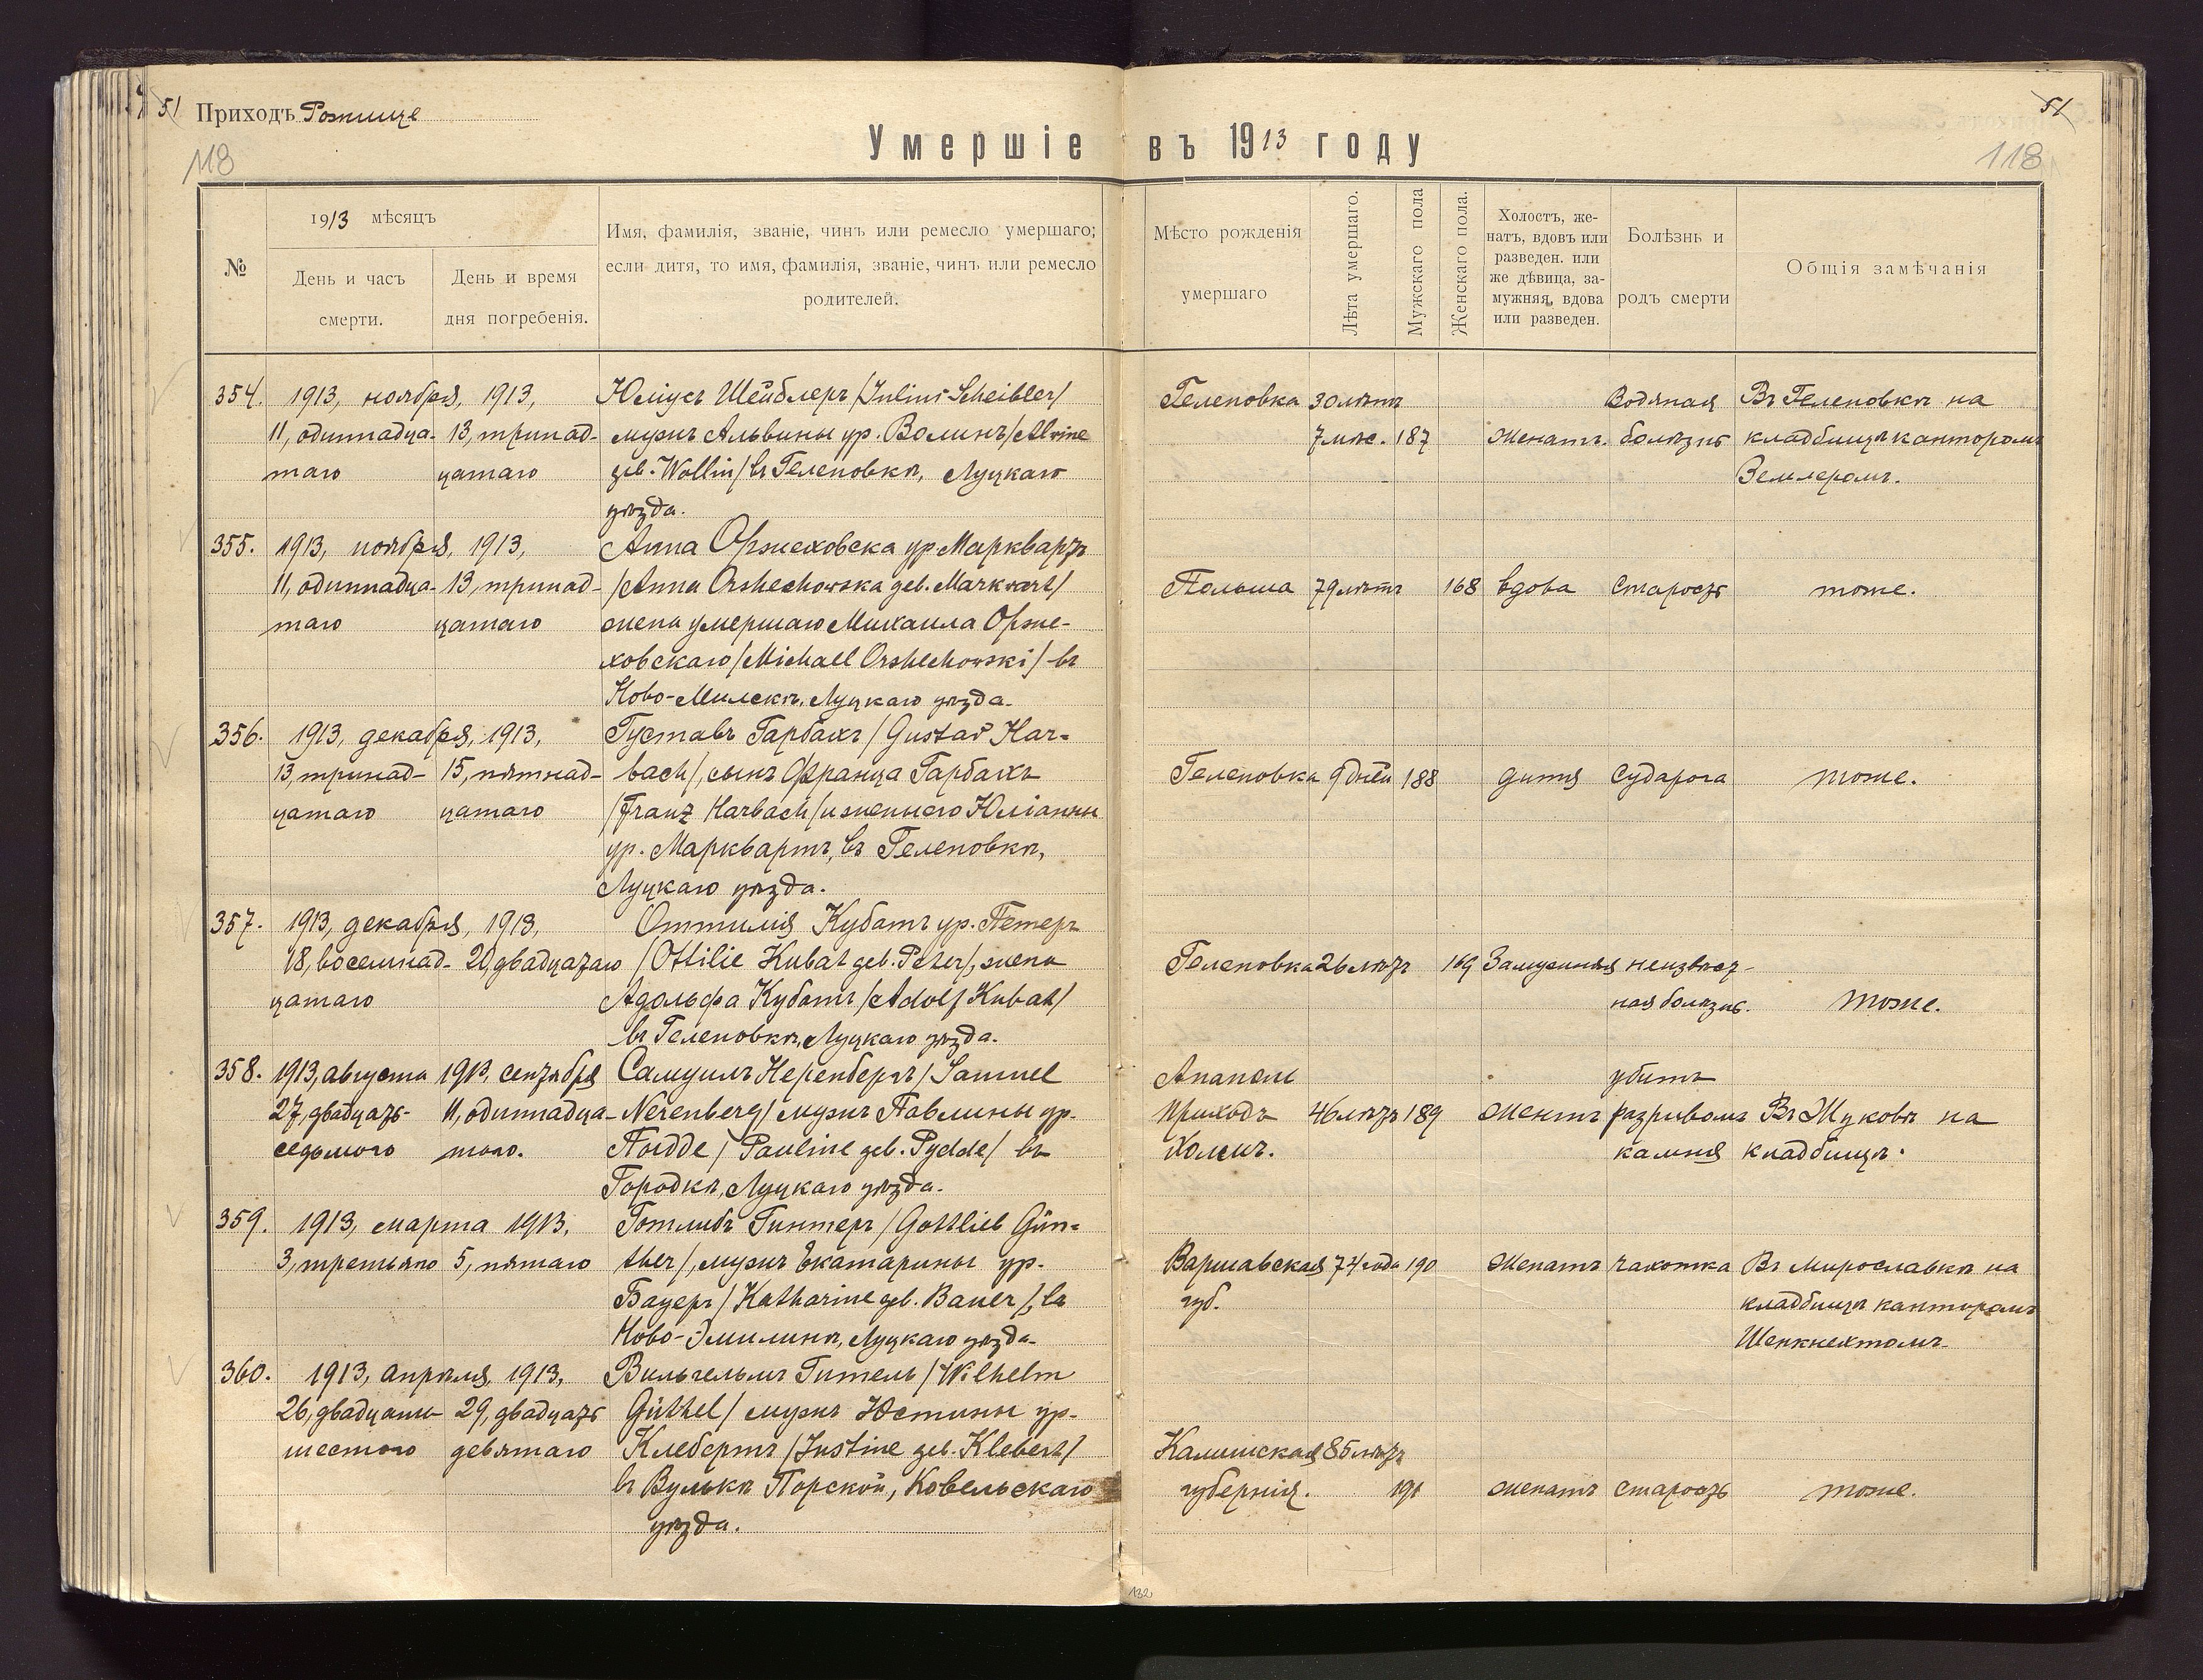 51 Приходъ Рожище
51
118
118
Умершіе въ 1913 году
№
1913 мѣсяцъ
День и часъ смерти.
День и время дня погребенія.
Имя, фамилія, званіе, чинъ или ремесло умершаго;
если дитя, то имя, фамилія, званіе, чинъ или ремесло
родителей.
Мѣсто рожденія
умершаго
Лѣта умершаго.
Мужскаго пола
Женскаго пола.
Холостъ, же-
натъ, вдовъ или
разведен. или
же дѣвица, за-
мужняя, вдова
или разведен.
Болѣзнь и
родъ смерти
Общія замѣчанія
354. 1913, ноября, 1913, Юліусъ Шейблеръ /Julius Scheibler/ Геленовка 30 лѣтъ Водяная Въ Геленовкѣ на
11, одиннадца- 13, тринад- мужъ Альвины ур. Волинъ /Alwine 7 мѣс. 187 женатъ. болѣзнь кладбищѣ канторомъ
таго цатаго geb. Wollin/ въ Геленовкѣ, Луцкаго Земмеромъ.
уѣзда.
355. 1913, ноября, 1913, Анна Оржеховска ур. Маркварт
11, одиннадца- 13, тринад- /Anna Orshechowska geb. Markwart/ Польша 79 лѣтъ 168 вдова старость тоже.
таго цатаго жена умершаго Михаила Орже-
ховскаго /Michael Orshechowski/ въ
Ново-Милскѣ, Луцкаго уѣзда.
356. 1913, декабря, 1913, Густавъ Гарбахъ /Gustav Har-
13, тринад- 15, пятнад- bach/, сынъ Франца Гарбахъ Геленовка 9 дней 188 дитя Судорога тоже.
цатаго цатаго /Franz Harbach/ и жены его Юліанны
ур. Марквартъ, въ Геленовкѣ,
Луцкаго уѣзда.
357. 1913, декабря, 1913, Оттилія Кубатъ ур. Петеръ
18, восемнад- 20, двадцатаго /Ottilie Kubat geb. Peter/, жена Геленовка 26 лѣтъ 169 Замужняя неизвѣст-
цатаго Адольфа Кубатъ /Adolf Kubat/ ная болѣзнь. тоже.
въ Геленовкѣ, Луцкаго уѣзда.
358. 1913, августа 1913, сентября Самуилъ Неренбергъ /Samuel Анаполь убитъ
27, двадцать- 11, одиннадца- Nerenberg/ мужъ Павлины ур. приходъ 46 лѣтъ 189 женатъ разрывомъ Въ Жуковѣ на
седьмого таго. Пыдде /Pauline geb. Pydde/ въ Холмъ. камня кладбищѣ.
Городкѣ, Луцкаго уѣзда.
359. 1913, марта 1913, Готлибъ Гинтеръ /Gottlieb Gün-
3, третьяго 5, пятаго ther/, мужъ Екатарины ур. Варшавская 74 года 190 женатъ чахотка Въ Мирославкѣ на
Бауеръ /Katharine geb. Bauer/, въ губ. кладбищѣ канторомъ
Ново-Эмилинѣ, Луцкаго уѣзда. Шенкнехтомъ.
360. 1913, апрѣля, 1913, Вильгельмъ Гитель /Wilhelm
26, двадцать 29, двадцать Güthel/ мужъ Юстины ур.
шестого девятаго Клебертъ /Justine geb. Klebert/ Калишская 85 лѣтъ
въ Вулькѣ Порской, Ковельскаго губернія. 191 женатъ старость тоже.
уѣзда.
132